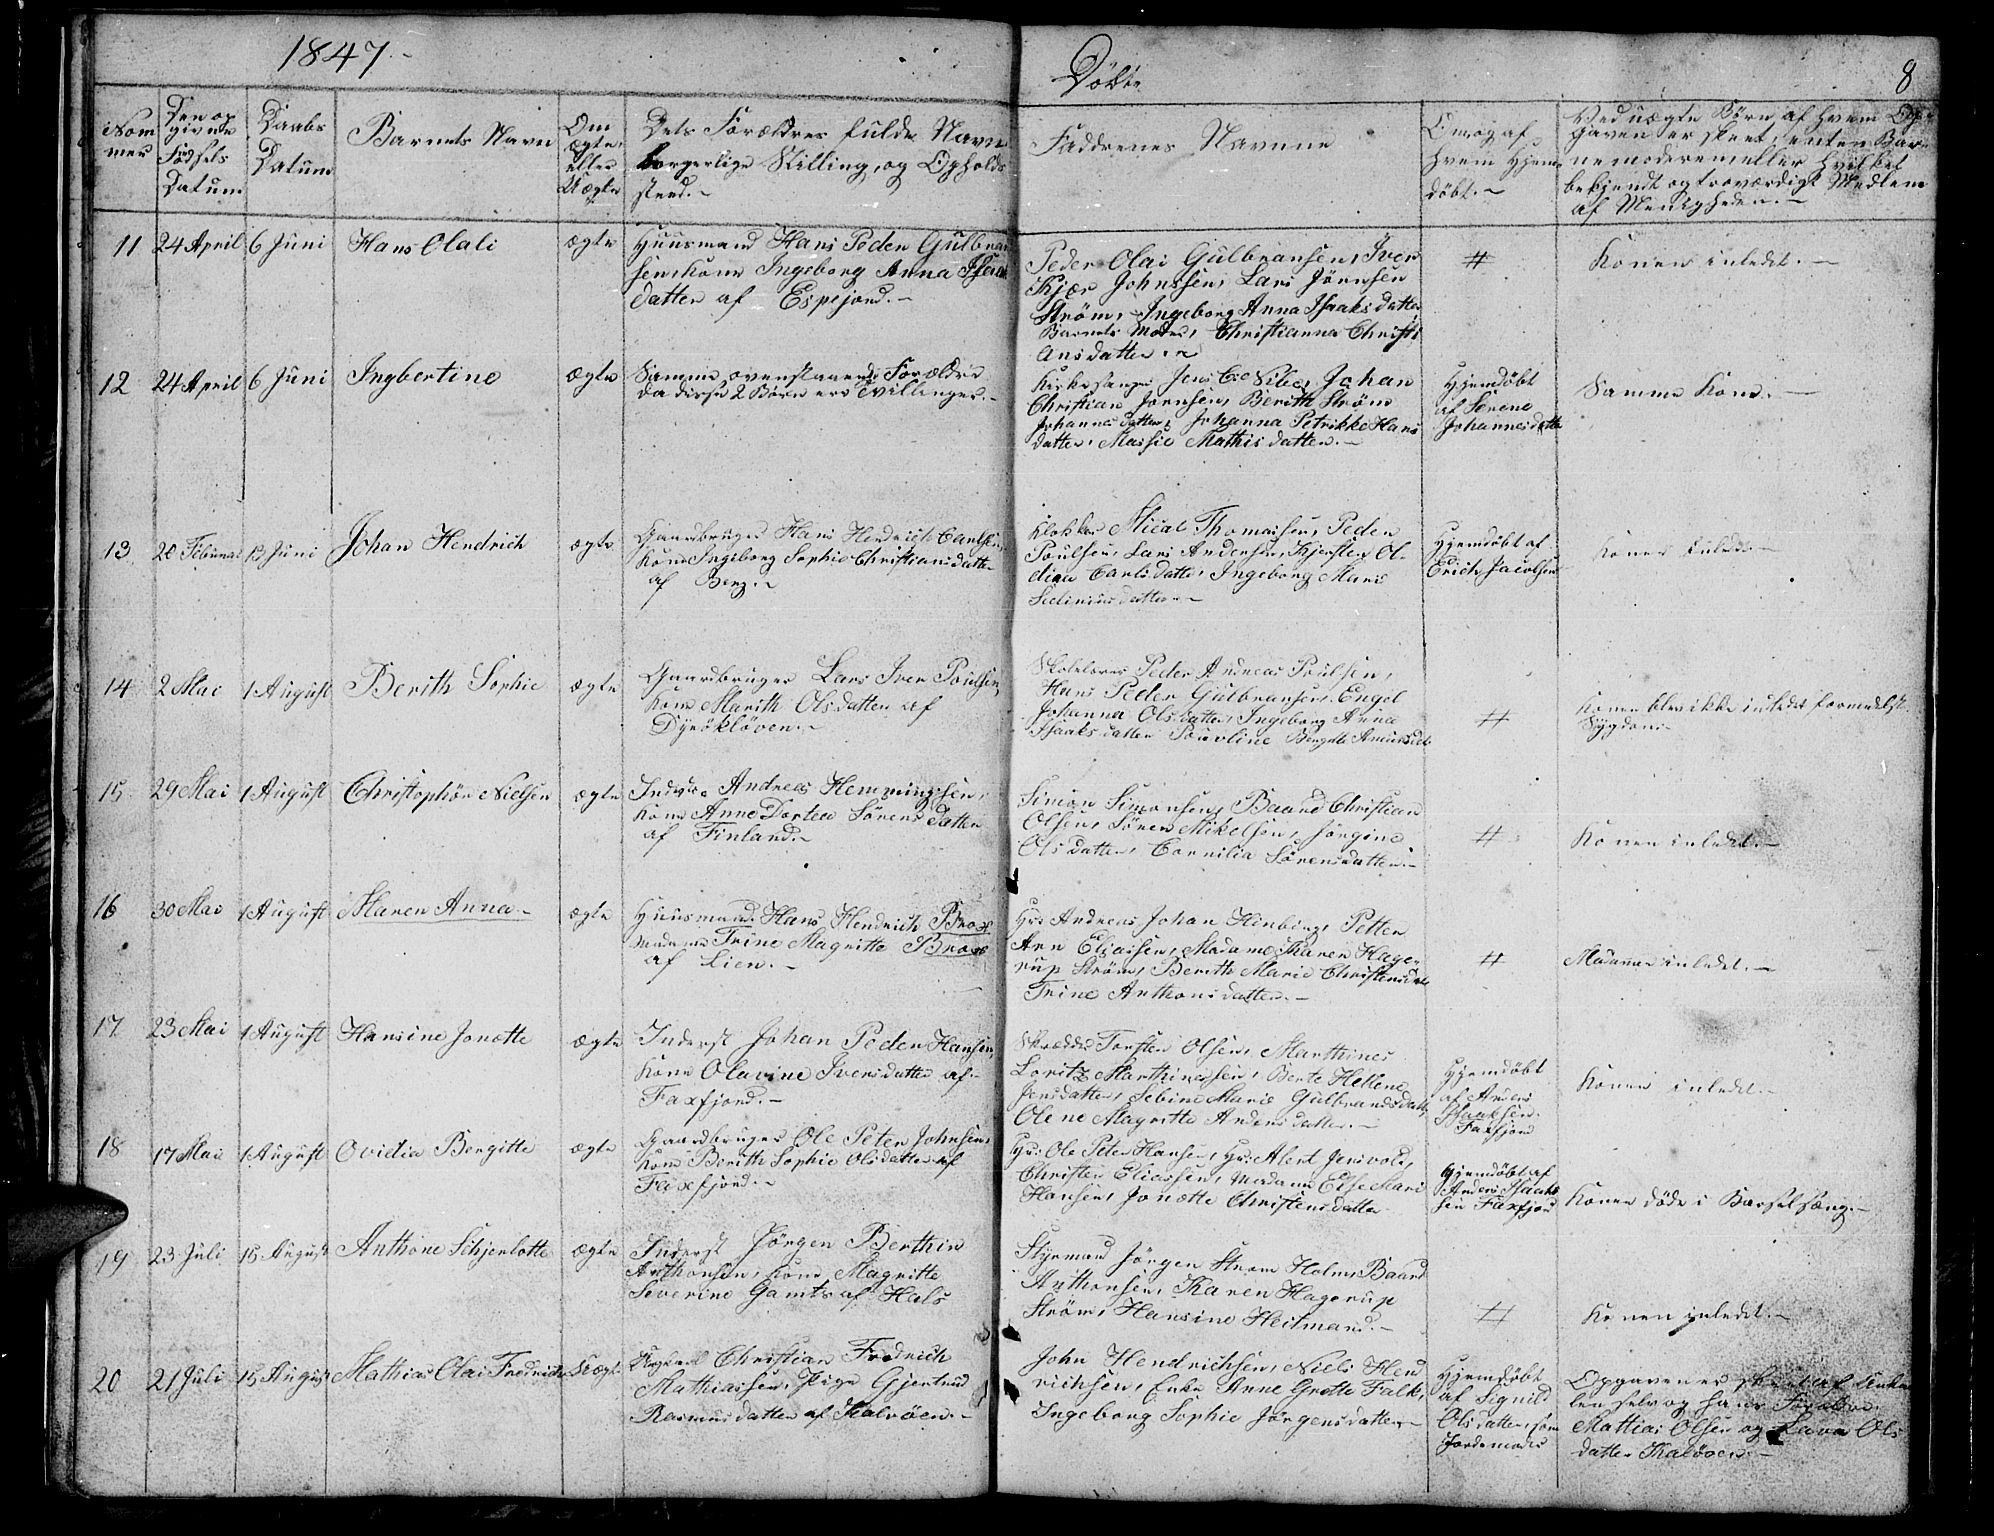 1847.
Döbte
8
Nom
mer
Den op
givne
Födsels
Datum
Daabs
Datum
Barnets Navn
Om
ægte
eller
Uægte
Dets Forældres fulde Navn
borgerlige Stilling, og Opholds
sted.-
Faddrenes Navnne
Om og af
hvem Hjem
döbt.-
Ved uægte Börn af hvem Op
gaven er skeet, enten Bar
nemoderen eller hvilket
bekjendt og troværdigt Medlem
af Menigheden.-
11 24 April 6 Juni Hans Olali ægte
Huusmand Hans Peder Gulbran
sen, Kone Ingeborg Anna Isaks
datter af Espejord.-
Peder Olai Gulbransen, Iver
Kjær Johnssen, Lars Jörnsen
Ström, Ingeborg Anna Isaaksdatter
Barnets Moder, Christianna Christi
ansdatter.-
#
Konen inledet.-
12 24 April 6 Juni Ingbertine ægte
Samme ovenstaaende Forældre
da disse 2 Börn ere Tvillinger.-
Kirkesanger Jens Nibe, Johan
Christian Jörnsen, Berith Ström
Johannesdatter, Johanna Petrikke Hans
datter, Massie Mathisdatter.-
Hjemdöbt
af Serene
Johannesdatte
Samme Kone.-
13 20 Februar 13 Juni Johan Hendrich ægte
Gaardbruger Hans Hendrich Carlsen,
Kone Ingeborg Sophie Christiansdatter
af Berg.-
Klokker Micael Thomassen, Peder
Poulsen, Lars Andersen, Kjersten Ol-
dina Carlsdatter, Ingeborg Maris
Sedeniusdatter.-
Hjemdöbt af
Erich Jacobsen
Konen inledt.-
14 2 Mai 1 August Berith Sophie ægte
Gaardbruger Lars Iver Poulsen,
Kone Marith Olsdatter af
Dyrökläven.-
Skolelærer Peder Andreas Poulsen,
Hans Peder Gulbransen, Engel
Johanna Olsdatter, Ingeborg Anna
Isaaksdatter, Pouvline Bergitte
#
Konen blev ikke inledet formedelst
Sygdom.-
15 29 Mai 1 August Christophör Nielsen ægte
Inder: Andreas Hemmingsen,
Kone Anne Dortea Sörensdatter
af Finland.-
Simon Simonsen, Baard Christian
Olsen, Sören Mikelsen, Jörgine
Olsdatter, Cornilia Sörensdatter.-
#
Konen inledet.-
16 30 Mai 1 August Maren Anna.- ægte
Huusmand Hans Hendrich Brox
Madame Trine Magritte Brox
af Lien.-
Hr: Andreas Johan Kinberg, Petter
Arn Eliassen, Madame Karen Hage-
rup Ström, Berith Marie Christensdat
Trine Anthonsdatter.-
#
Madamen inledet.-
17 23 Mai 1 August Hansine Jonette ægte
Inderst Johan Peder Hansen,
Kone Olavine Iversdatter af
Faxfjord.-
Skrædder Torsten Olsen, Marthines
Loritz Marthinessen, Berte Hellene
Jensdatter, Sebine Marie Gulbrandsdatt
Olene Magritte Andersdatter.-
Hjemdöbt
af Anders
Isaaksen
Faxfjord
Konen inledet.-
18 17 Mai 1 August Ovidia Bergitte ægte
Gaardbruger Ole Peter Johnsen,
Kone Berith Sophie Olsdatter af
Faxfjord.-
Hr: Ole Peter Hansen, Hr: Alert Jensvold,
Christen Eliassen, Madame Else Mari
Hansen, Jonette Christensdatter
Hjemdöbt af
Anders Isaak
sen Faxfjord
Konen döde i Barselseng.-
19 23 Juli 15 August Anthone Schjerlotte ægte
Inderst Jörgen Berthin
Anthonsen, Kone Magritte
Severine Gamts af Hals
Styrmand Jörgen Strom Holm, Baard
Anthonsen, Karen Hagerup
Ström, Hansine Heitmand.-
#
Konen inledet.-
20 21 Juli 15 August Mathias Olai Fredrich Uægte
Ungkarl Christian Fredrich
Mathiassen, Pige Gjertrud
Rasmusdatter af Kalvöen.-
John Hendrichsen, Niels Hend
richsen, Enke Anne Grette Falk,
Ingeborg Sophie Jörgensdatter.-
Hjemdöbt
af Signild
Olsdatter, som
Jordemoder
Opgaven er skeet af Enke
len selv og hans Forældre
Mattias Olsen og Lava Ols
datter Kalöen.-